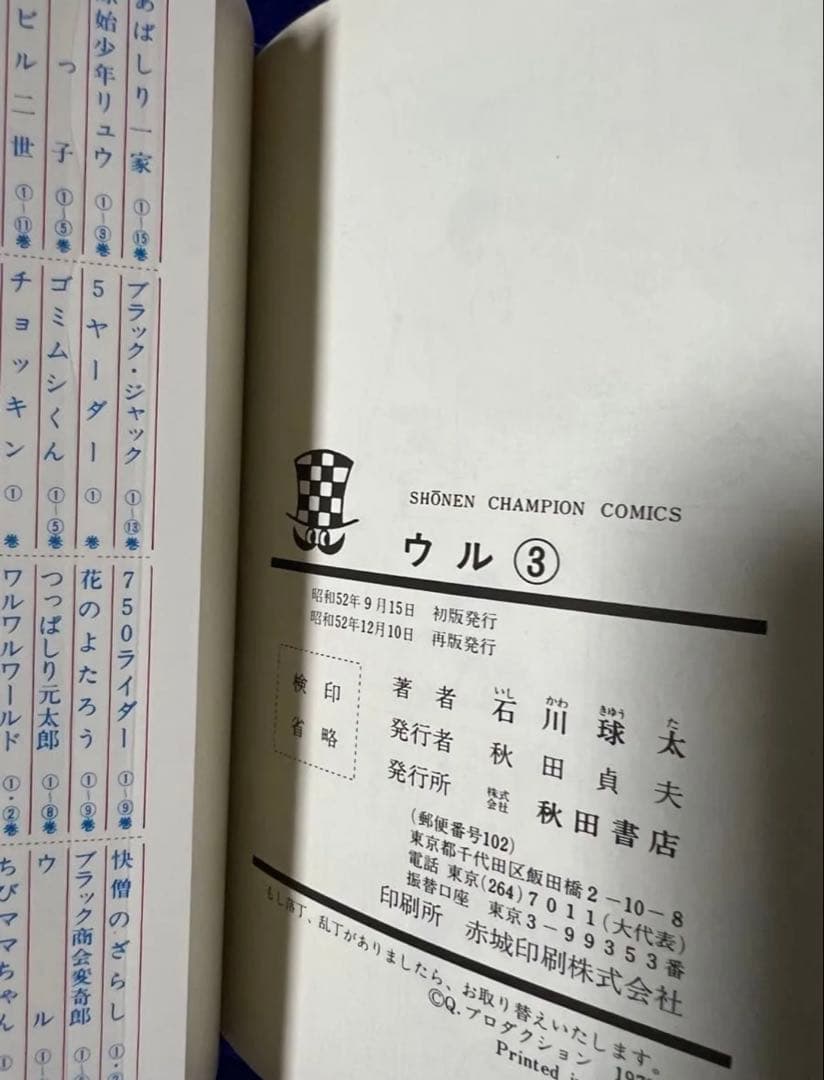 あばしり一家 ①〜⑮巻
原始少年リュウ ①〜③巻
っ子 ①〜⑤巻
ビル二世 ①〜⑪巻
ブラック・ジャック ①〜⑬巻
5ヤーダー ① 巻
ゴミムシくん ①〜⑤巻
チョッキン ① 巻
750ライダー ①〜⑨巻
花のよたろう ①〜⑨巻
つっぱしり元太郎 ①〜⑧巻
ワルワルワールド ①・②巻
快僧のざらし ①・
ブラック商会変奇郎 ①
ウル ①
ちびママちゃん ①
SHŌNEN CHAMPION COMICS
ウル③
昭和52年9月15日 初版発行
昭和52年12月10日 再版発行
検印
省略
著者 石川球太
いし かわ きゆう た
発行者 秋田貞夫
発行所 株式会社 秋田書店
(郵便番号102)
東京都千代田区飯田橋2-10-8
電話 東京(264)7011(大代表)
振替口座 東京3-99353番
印刷所 赤城印刷株式会社
もし落丁、乱丁がありましたら、お取り替えいたします。
©Q.プロダクション 197
Printed in